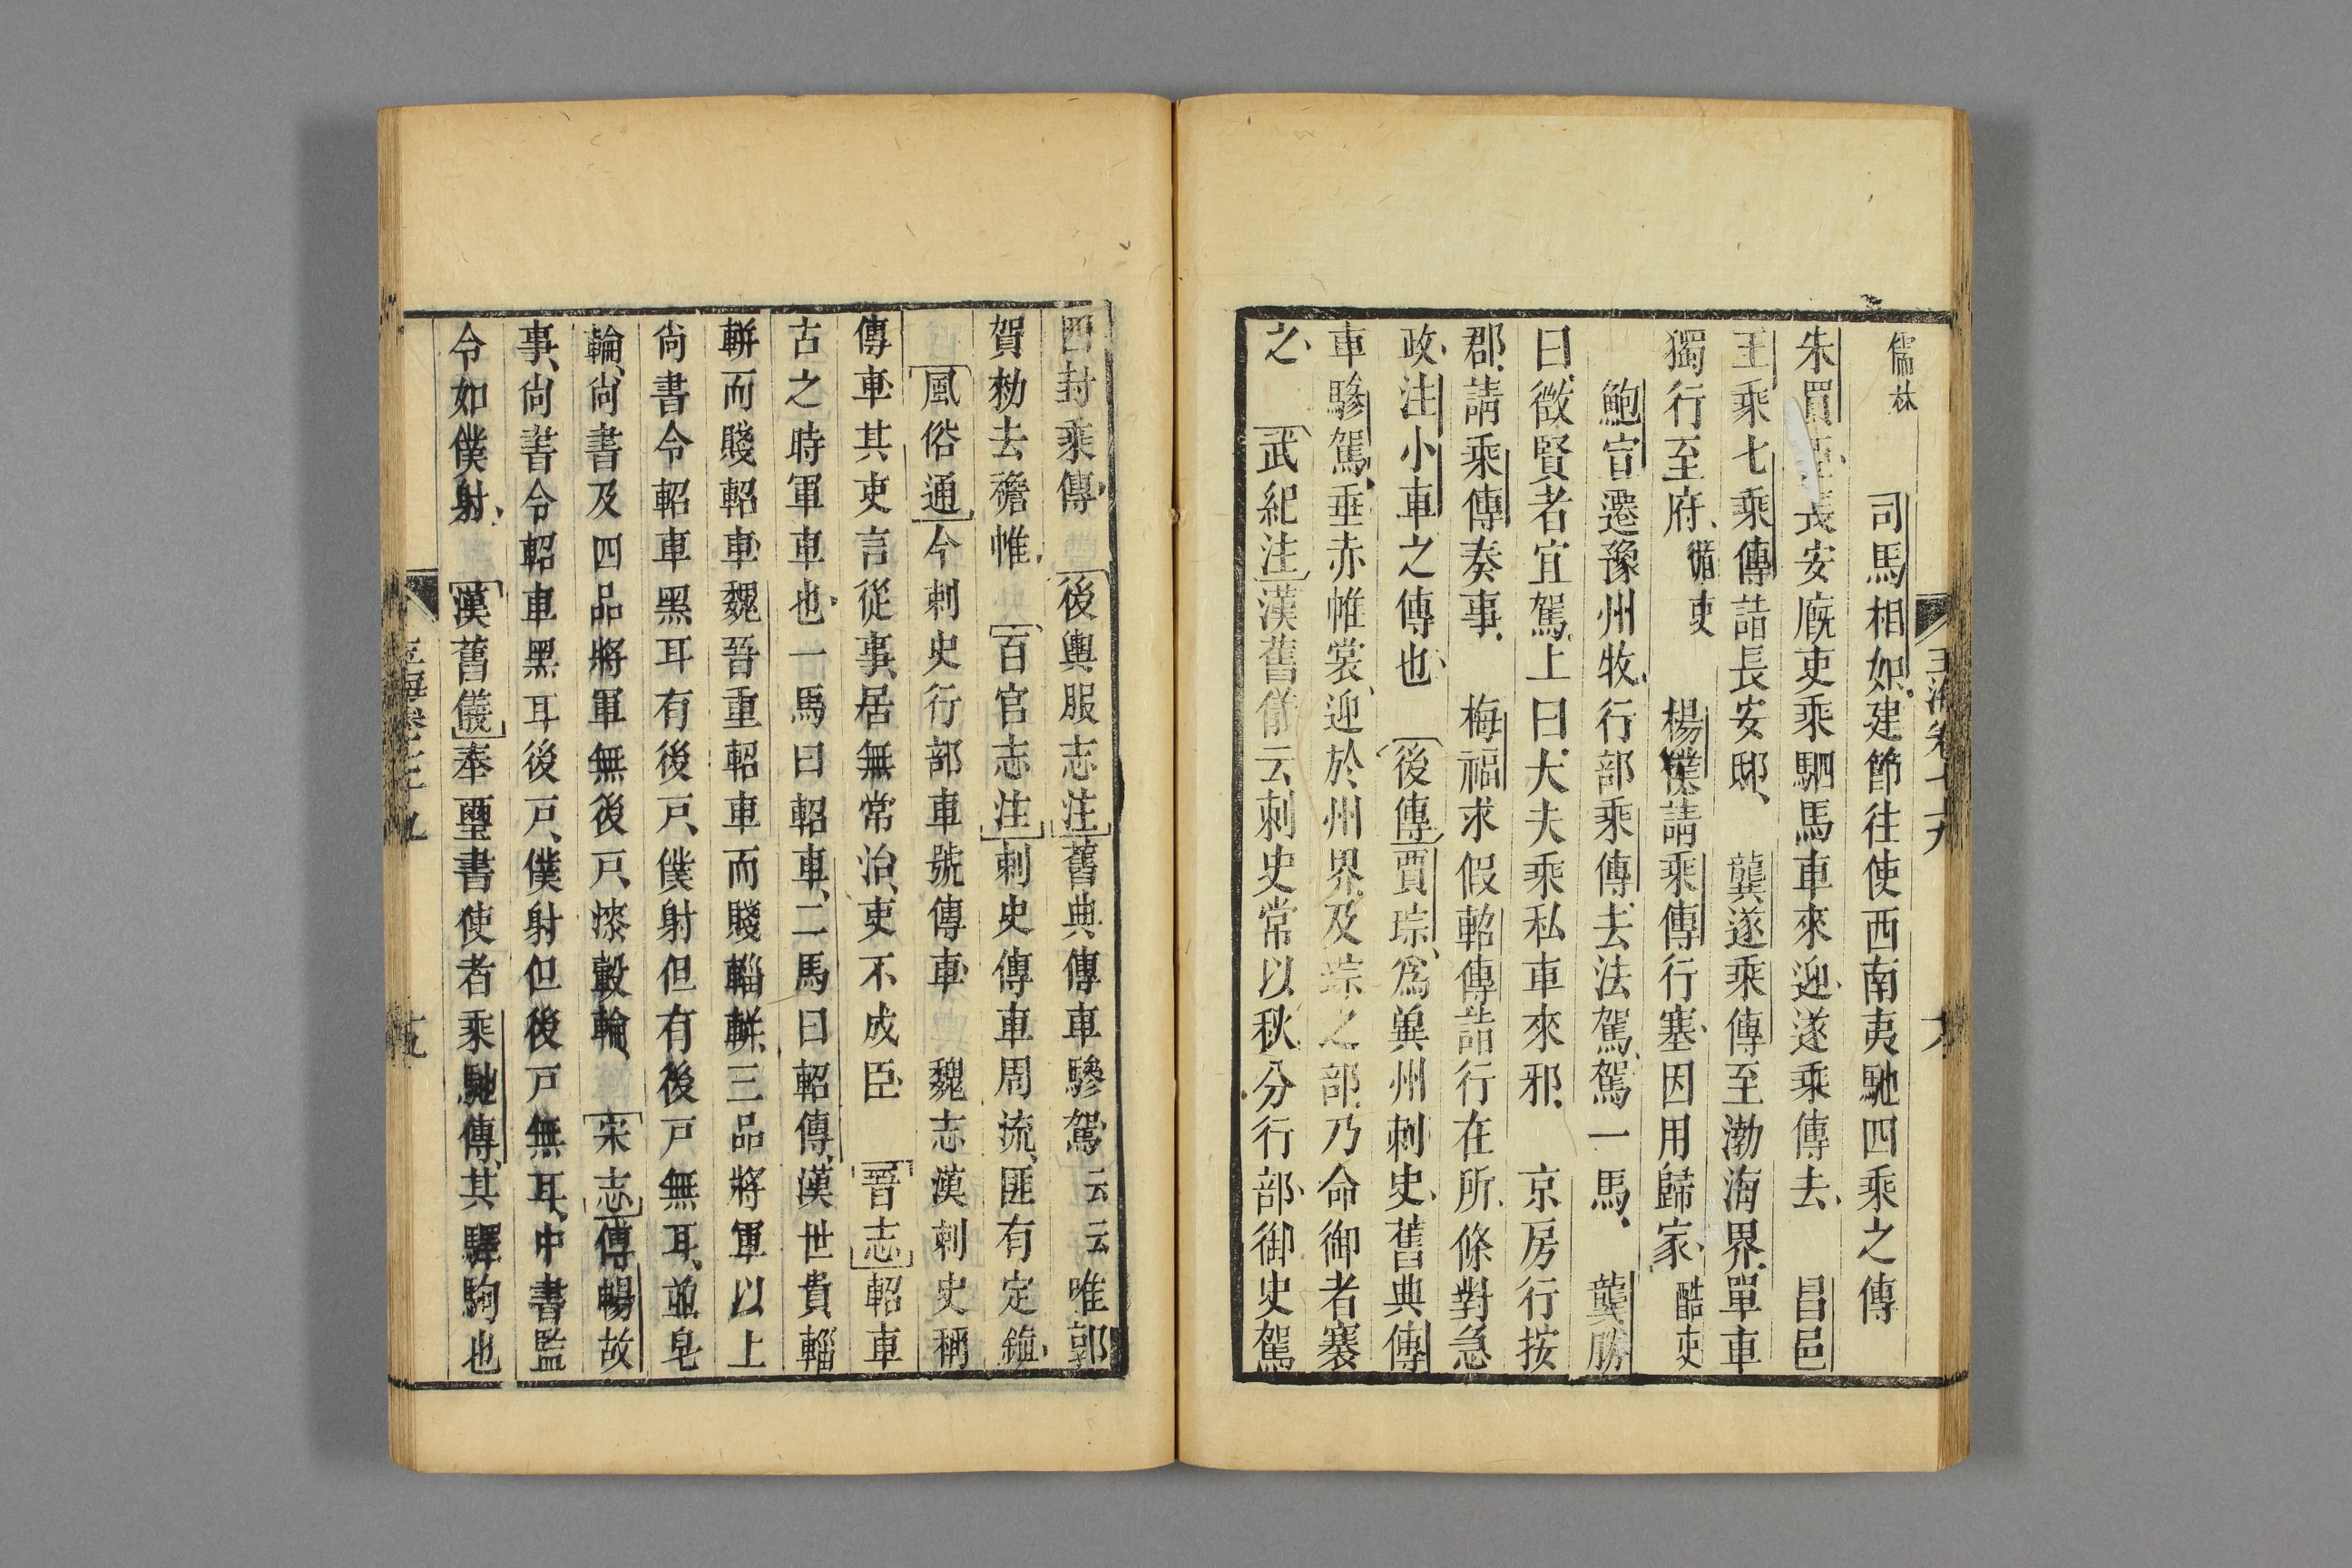 儒林　司馬相如建節往使西南夷馳四乘之傳
朱買臣長安廄吏乘駟馬車來迎遂乘傳去　昌邑
王乘七乘傳詣長安邸　龔遂乘傳至渤海界單車
獨行至府循吏　楊僕請乘傳行塞因用歸家酷吏
鮑宣遷豫州牧行部乘傳去法駕駕一馬　龔勝
曰徵賢者宜駕上曰大夫乘私車來邪　京房行按
郡請乘傳奏事　梅福求假軺傳詣行在所條對急
政注小車之傳也　後傳賈琮爲兾州刺史舊典傳
車驂駕垂赤帷裳迎於州界及琮之部乃命御者褰
之　武紀注漢舊儀云刺史常以秋分行部御史駕
四封乘傳　後輿服志注舊典傳車驂駕云云唯郭
賀勑去襜帷　百官志注刺史傳車周流匪有定鎮
風俗通今刺史行部車號傳車　魏志漢刺史稱
傳車其吏言從事居無常治吏不成臣　晉志軺車
古之時軍車也一馬曰軺車二馬曰軺傳漢世貴輜
軿而賤軺車魏晉重軺車而賤輜軿三品將軍以上
尚書令軺車黑耳有後戶僕射但有後戶無耳並皂
輪尚書及四品將軍無後戶漆轂輪　宋志傅暢故
事尚書令軺車黑耳後戶僕射但後戶無耳中書監
令如僕射　漢舊儀奉璽書使者乘馳傳其驛駒也